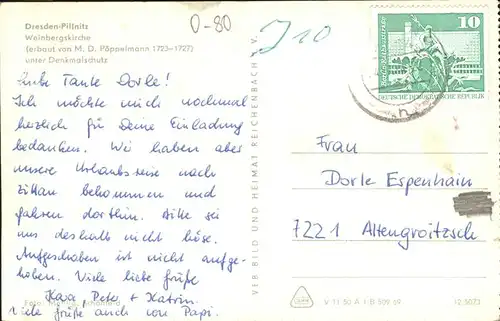 Dresden-Pillnitz
Weinbergskirche
(erbaut von M. D. Pöppelmann 1723–1727)
unter Denkmalschutz
0-80
J 10
10
Berlin-Rathausstraße
DEUTSCHE DEMOKRATISCHE REPUBLIK
Liebe Tante Dorle!
Ich möchte mich nochmal
herzlich für Deine Einladung
bedanken. Wir haben aber
unsere Urlaubsreise nach
Zittau bekommen und
fahren dorthin. Bitte sei
uns deshalb nicht böse.
Aufgeschoben ist nicht aufge-
hoben. Viele liebe Grüße
Peter + Katrin.
Viele Grüße auch von Papi.
VEB BILD UND HEIMAT REICHENBACH
Frau
Dorle Espenhain
7221 Altengroitzsch
Foto
V 11 50 A 1 B 509/69
12 5073